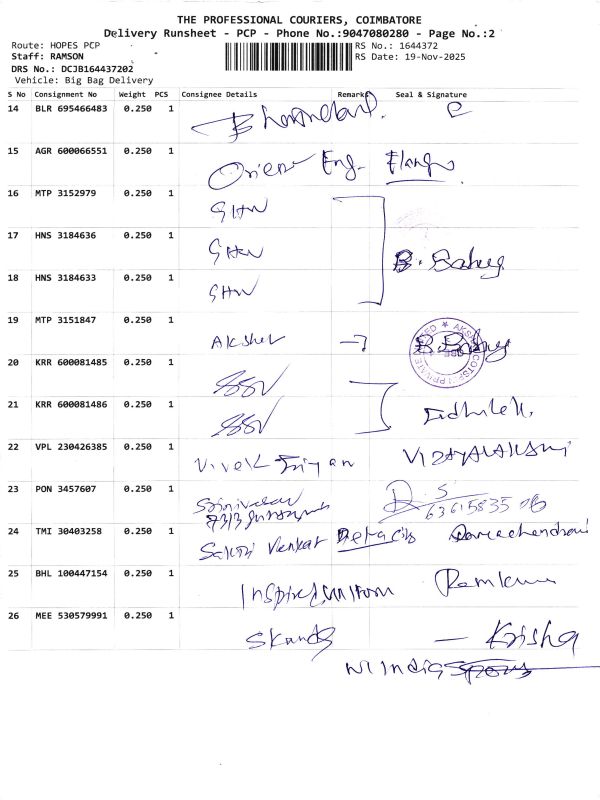 THE PROFESSIONAL COURIERS, COIMBATORE
Delivery Runsheet - PCP - Phone No.:9047080280 - Page No.:2
Route: HOPES PCP RS No.: 1644372
Staff: RAMSON RS Date: 19-Nov-2025
DRS No.: DCJB164437202
Vehicle: Big Bag Delivery
S No Consignment No Weight PCS Consignee Details Remarks Seal & Signature
14 BLR 695466483 0.250 1
15 AGR 600066551 0.250 1 Eng.
16 MTP 3152979 0.250 1 GHN
17 HNS 3184636 0.250 1 GHN B.
18 HNS 3184633 0.250 1 GHN
19 MTP 3151847 0.250 1 Aksher B.
20 KRR 600081485 0.250 1 SSV
21 KRR 600081486 0.250 1 SSV
22 VPL 230426385 0.250 1 Vivek VIJAYALAKSMI
23 PON 3457607 0.250 1 Srinivasan D. S
24 TMI 30403258 0.250 1 Sakthi Venkat Ramachandran
25 BHL 100447154 0.250 1 Ramkumar
26 MEE 530579991 0.250 1 Skands - Krishna